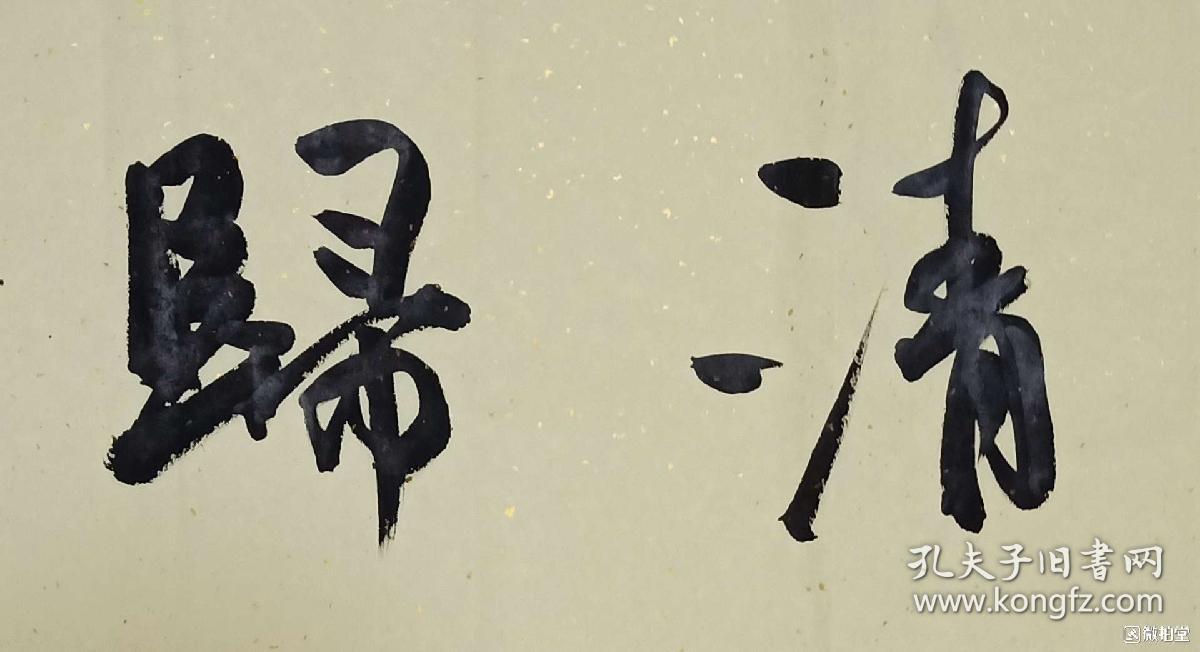 清歸
孔夫子旧書网
www.kongfz.com
微拍堂